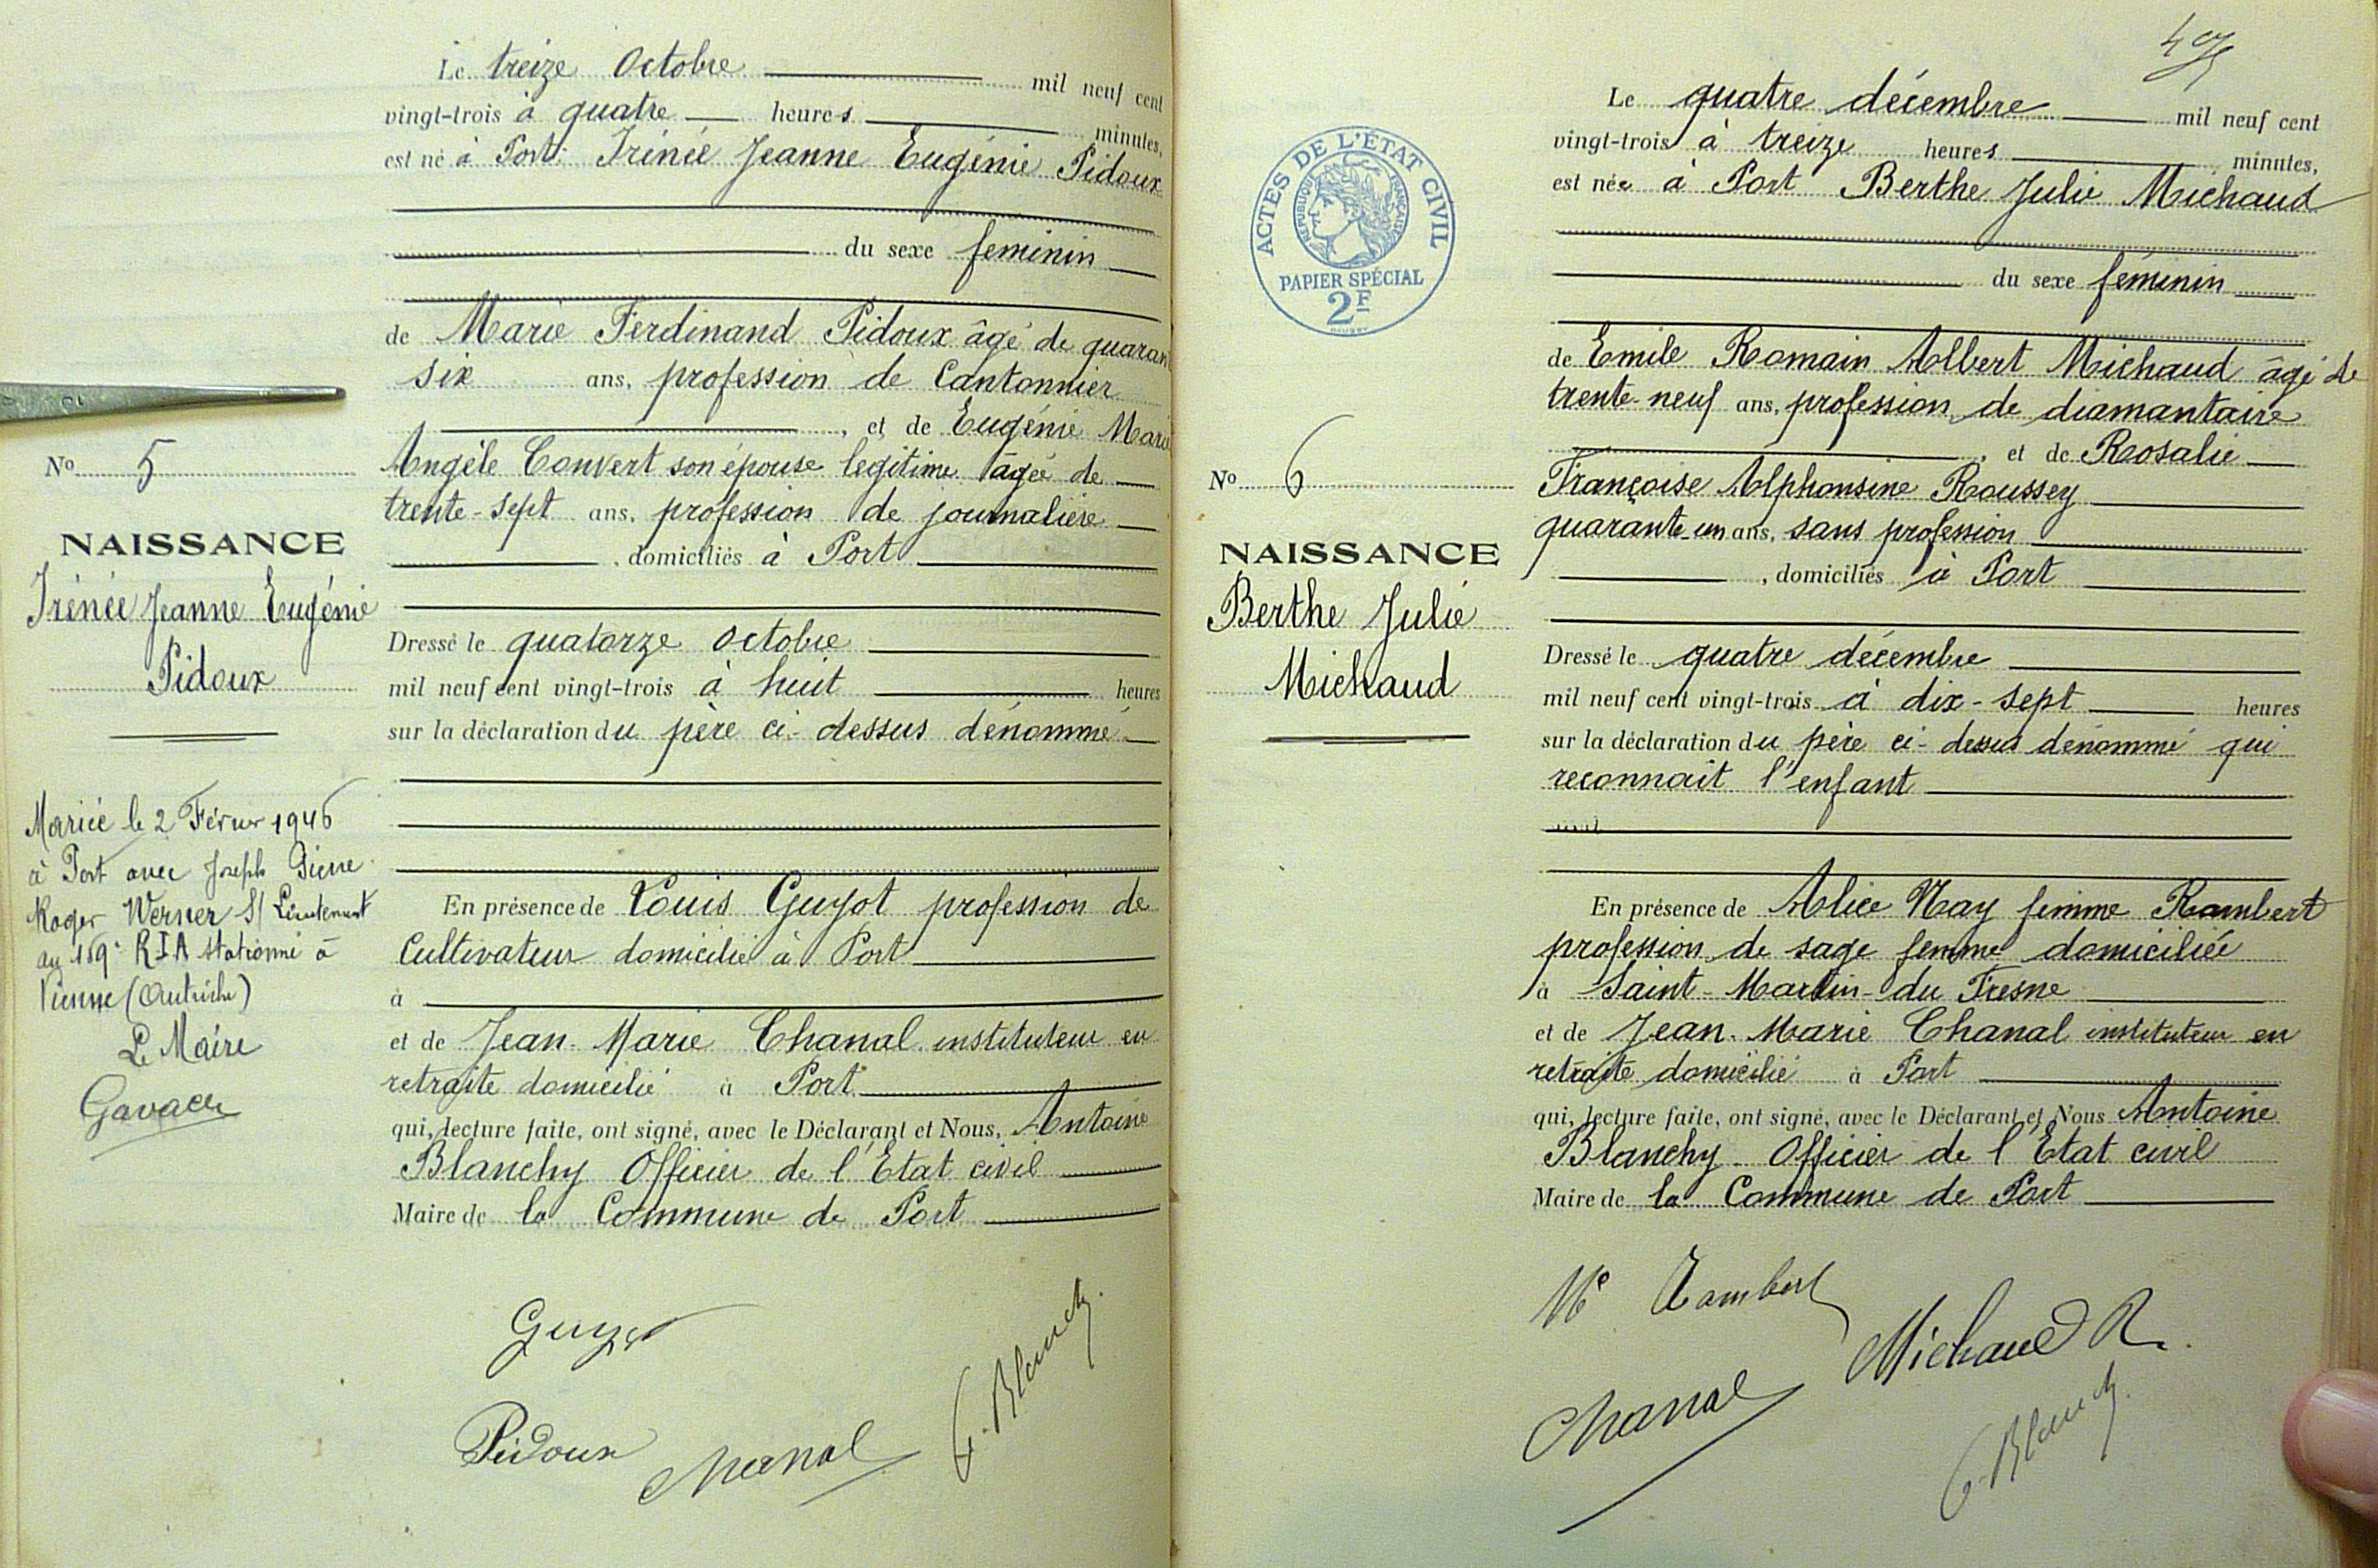 Le treize Octobre mil neuf cent
vingt-trois à quatre heures minutes,
est né à Port Irénée Jeanne Eugénie Pidoux
du sexe feminin
de Marie Ferdinand Pidoux âgé de quaran
six ans, profession de Cantonnier
, et de Eugénie Marie
Angèle Convert son épouse legitime âgée de
trente-sept ans, profession de journalière
, domiciliés à Port
Dressé le quatorze Octobre
mil neuf cent vingt-trois à huit heures
sur la déclaration du père ci-dessus dénommé
En présence de Louis Guyot profession de
Cultivateur domicilié à Port
à
et de Jean-Marie Chanal instituteur en
retraite domicilié à Port
qui, lecture faite, ont signé, avec le Déclarant et Nous, Antoine
Blanchy Officier de l'Etat civil
Maire de la Commune de Port
Guyot
Pidoux Chanal A. Blanchy
No 5
NAISSANCE
Irénée Jeanne Eugénie
Pidoux
Mariée le 2 Février 1946
à Port avec Joseph Pierre
Roger Werner S/ Lieutenant
au 159e RIA stationné à
Vienne (Autriche)
Le Maire
ACTES DE L'ÉTAT CIVIL
RÉPUBLIQUE FRANÇAISE
PAPIER SPÉCIAL
2F
No 6
NAISSANCE
Berthe Julie
Michaud
Le quatre décembre mil neuf cent
vingt-trois à treize heures minutes,
est née à Port Berthe Julie Michaud
du sexe féminin
de Emile Romain Albert Michaud âgé de
trente-neuf ans, profession de diamantaire
, et de Rosalie
Françoise Alphonsine Roussey
quarante-un ans, sans profession
, domiciliés à Port
Dressé le quatre décembre
mil neuf cent vingt-trois à dix-sept heures
sur la déclaration du père ci-dessus dénommé qui
reconnait l'enfant
En présence de Alice May femme Rambert
profession de sage femme domiciliée
à Saint-Martin-du Fresne
et de Jean-Marie Chanal instituteur en
retraite domicilié à Port
qui, lecture faite, ont signé, avec le Déclarant et Nous Antoine
Blanchy Officier de l'Etat civil
Maire de la Commune de Port
Rambert
Michaud R.
Chanal
A. Blanchy